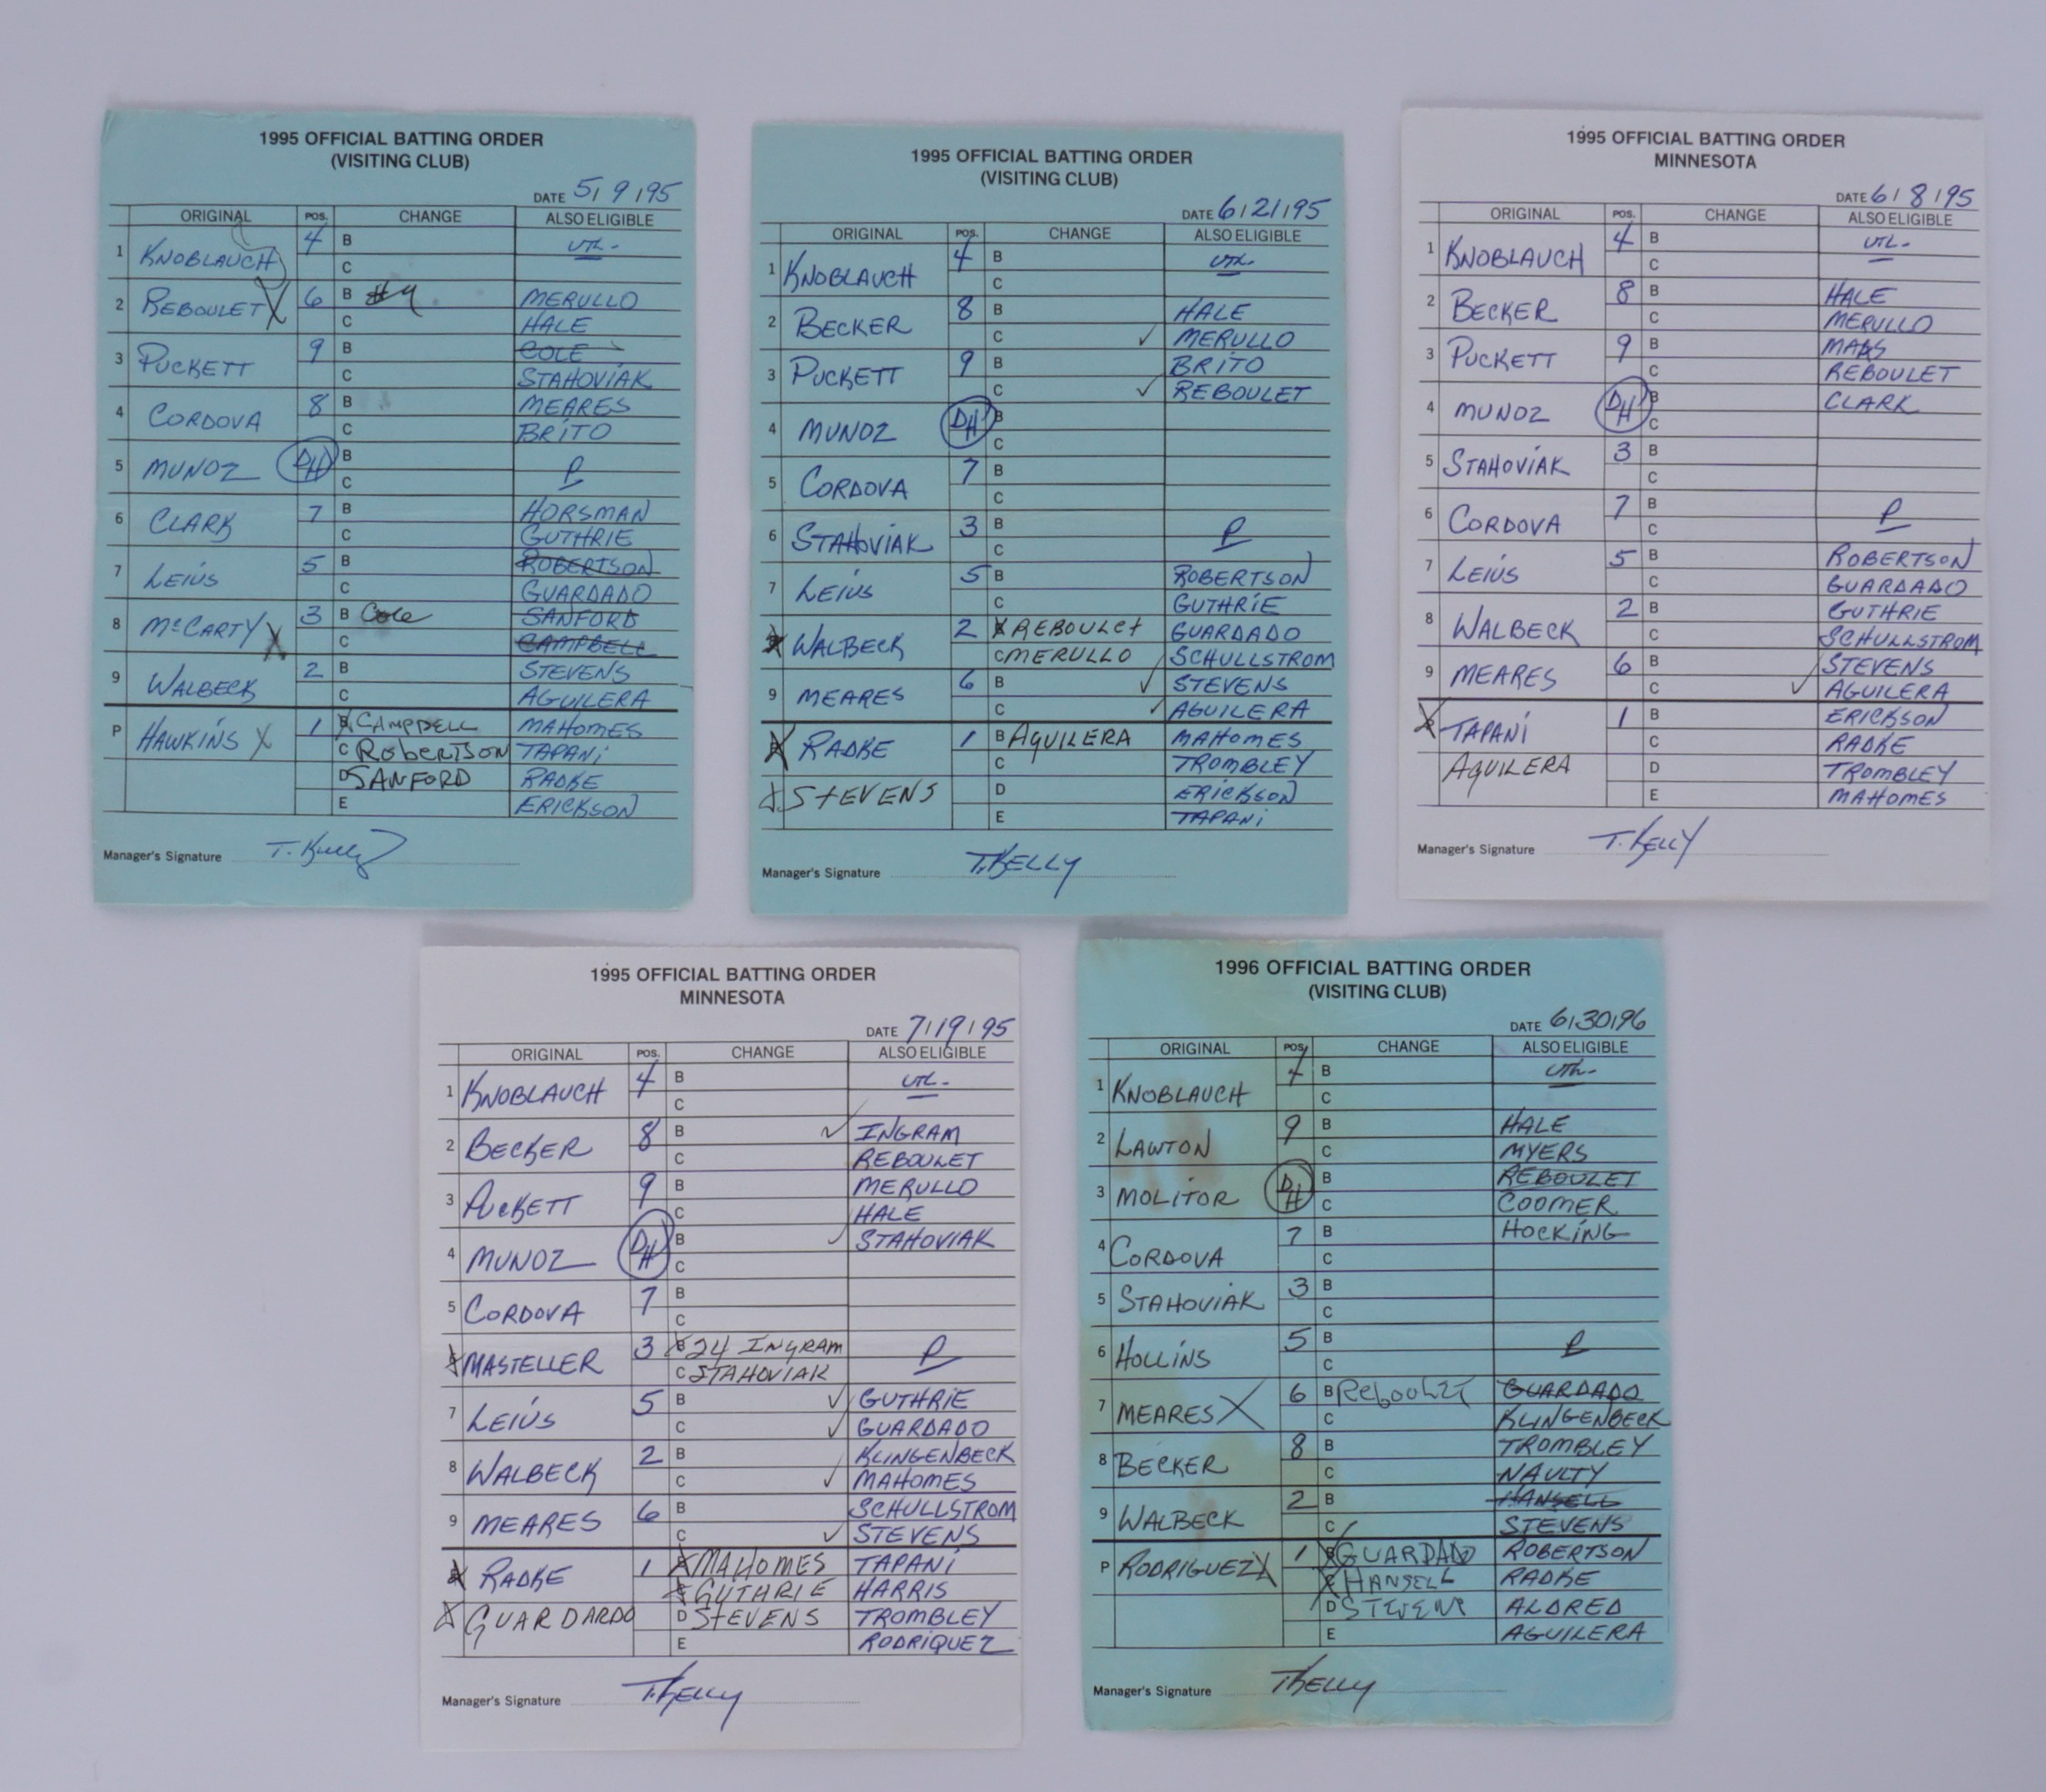 1995 OFFICIAL BATTING ORDER
(VISITING CLUB)
DATE 5/9/95
ORIGINAL POS. CHANGE ALSO ELIGIBLE
1 KNOBLAUCH 4 B UTL.
C
2 REBOULET X 6 B #4 MERULLO
C HALE
3 PUCKETT 9 B COLE
C STAHOVIAK
4 CORDOVA 8 B MEARES
C BRITO
5 MUNOZ DH B P
C
6 CLARK 7 B HORSMAN
C GUTHRIE
7 LEIUS 5 B ROBERTSON
C GUARDADO
8 McCARTY X 3 B Cole SANFORD
C CAMPBELL
9 WALBECK 2 B STEVENS
C AGUILERA
P HAWKINS X 1 B CAMPBELL MAHOMES
C ROBERTSON TAPANI
D SANFORD RADKE
E ERICKSON
Manager's Signature T. Kelly
1995 OFFICIAL BATTING ORDER
(VISITING CLUB)
DATE 6/21/95
ORIGINAL POS. CHANGE ALSO ELIGIBLE
1 KNOBLAUCH 4 B UTL.
C
2 BECKER 8 B HALE
C ✓ MERULLO
3 PUCKETT 9 B BRITO
C ✓ REBOULET
4 MUNOZ DH B
C
5 CORDOVA 7 B
C
6 STAHOVIAK 3 B P
C
7 LEIUS 5 B ROBERTSON
C GUTHRIE
8 WALBECK 2 B REBOULET GUARDADO
C MERULLO SCHULLSTROM
9 MEARES 6 B ✓ STEVENS
C ✓ AGUILERA
P RADKE 1 B AGUILERA MAHOMES
C TROMBLEY
X STEVENS D ERICKSON
E TAPANI
Manager's Signature T. KELLY
1995 OFFICIAL BATTING ORDER
MINNESOTA
DATE 6/8/95
ORIGINAL POS. CHANGE ALSO ELIGIBLE
1 KNOBLAUCH 4 B UTL.
C
2 BECKER 8 B HALE
C MERULLO
3 PUCKETT 9 B MAAS
C REBOULET
4 MUNOZ DH B CLARK
C
5 STAHOVIAK 3 B
C
6 CORDOVA 7 B P
C
7 LEIUS 5 B ROBERTSON
C GUARDADO
8 WALBECK 2 B GUTHRIE
C SCHULLSTROM
9 MEARES 6 B STEVENS
C ✓ AGUILERA
P TAPANI 1 B ERICKSON
C RADKE
AGUILERA D TROMBLEY
E MAHOMES
Manager's Signature T. KELLY
1995 OFFICIAL BATTING ORDER
MINNESOTA
DATE 7/19/95
ORIGINAL POS. CHANGE ALSO ELIGIBLE
1 KNOBLAUCH 4 B UTL.
C
2 BECKER 8 B ✓ INGRAM
C REBOULET
3 PUCKETT 9 B MERULLO
C HALE
4 MUNOZ DH B ✓ STAHOVIAK
C
5 CORDOVA 7 B
C
6 MASTELLER 3 B 24 INGRAM P
C STAHOVIAK
7 LEIUS 5 B ✓ GUTHRIE
C ✓ GUARDADO
8 WALBECK 2 B KLINGENBECK
C ✓ MAHOMES
9 MEARES 6 B SCHULLSTROM
C ✓ STEVENS
P RADKE 1 B MAHOMES TAPANI
C GUTHRIE HARRIS
X GUARDARDO D STEVENS TROMBLEY
E RODRIQUEZ
Manager's Signature T. KELLY
1996 OFFICIAL BATTING ORDER
(VISITING CLUB)
DATE 6/30/96
ORIGINAL POS. CHANGE ALSO ELIGIBLE
1 KNOBLAUCH 4 B UTL.
C
2 LAWTON 9 B HALE
C MYERS
3 MOLITOR DH B REBOULET
C COOMER
4 CORDOVA 7 B HOCKING
C
5 STAHOVIAK 3 B
C
6 HOLLINS 5 B P
C
7 MEARES X 6 B Reboulet GUARDADO
C KLINGENBECK
8 BECKER 8 B TROMBLEY
C NAULTY
9 WALBECK 2 B HANSELL
C STEVENS
P RODRIGUEZ X 1 B GUARDADO ROBERTSON
C HANSELL RADKE
D STEVENS ALDRED
E AGUILERA
Manager's Signature T KELLY